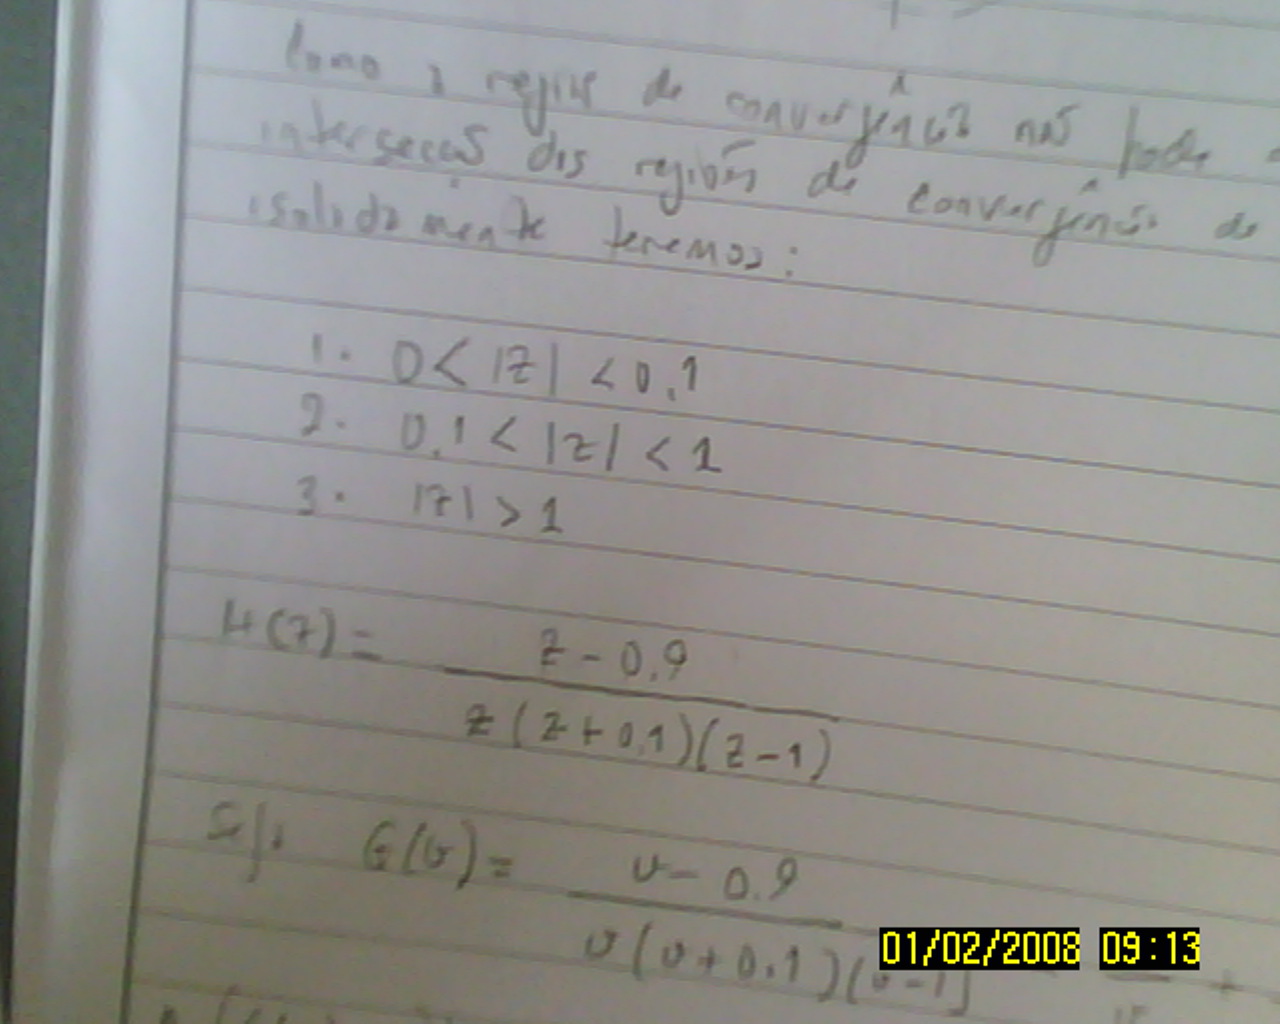 Como a região de convergência não pode
intersecção das regiões de convergência de
isoladamente teremos:
1. 0 < |z| < 0.1
2. 0.1 < |z| < 1
3. |z| > 1
H(z) = z - 0.9
z(z + 0.1)(z - 1)
G(v) = v - 0.9
v(v + 0.1)(v - 1) +
01/02/2008 09:13